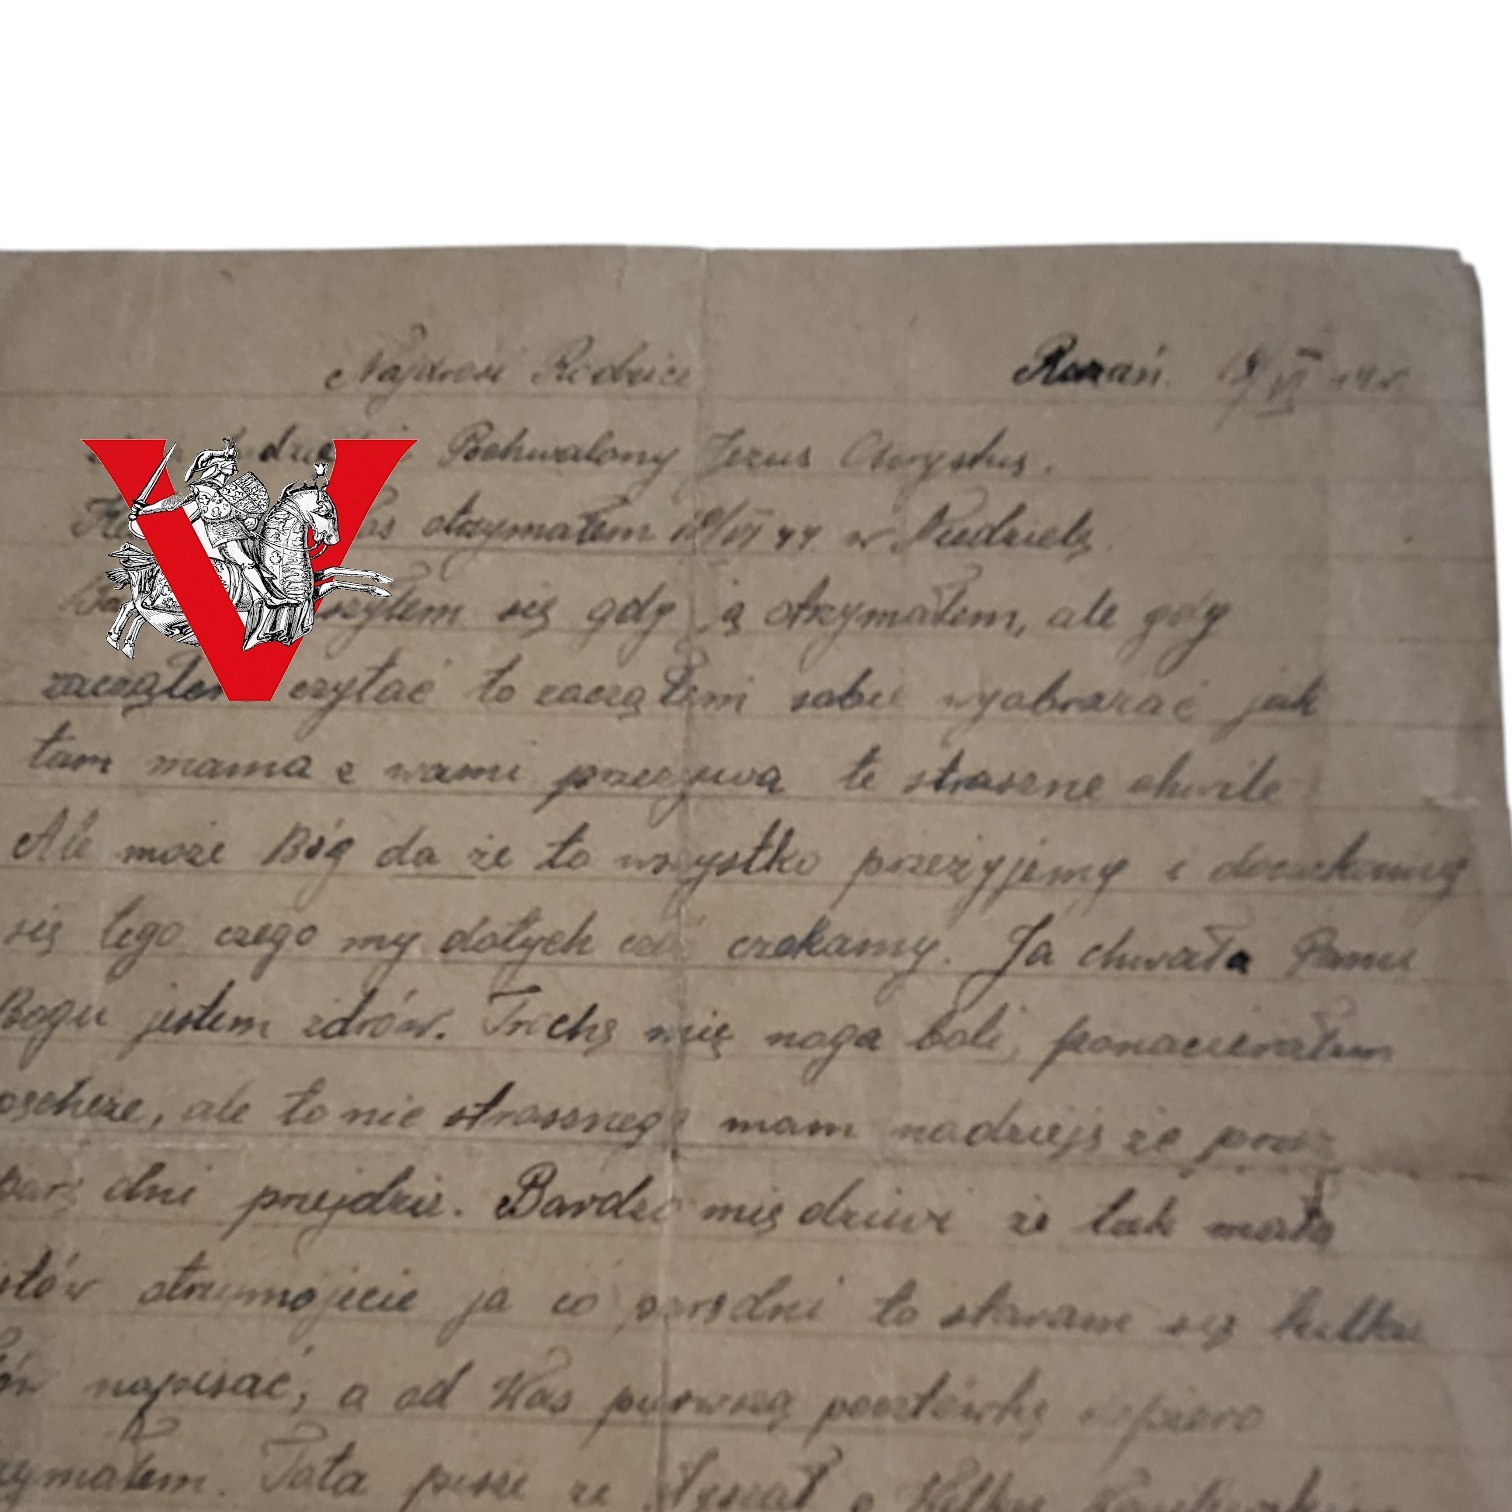 Najdrosi Rodzice Rozań. 44 r.
Pohwalony Jezus Chrystus.
otrzymałem 44 w Niedzielę.
się gdy ją otrzymałem, ale gdy
zacząłem czytać to zacząłem sobie wyobrażać jak
tam mama z wami przezywa te straszne chwile
Ale może Bóg da że to wszystko przeżyjemy i doczekamy
się tego czego my dotych czas czekamy. Ja chwała Panu
Bogu jestem zdrów. Trochę mię noga boli, ponacierałem
ale to nie strasznego mam nadzieję że przez
parę dni przejdzie. Bardzo mię dziwi że tak mało
listów otrzymojecie ja co parę dni to staram się kilka
napisać, a od Was pierwszą pocztówkę dopiero
otrzymałem. Tata pisze że